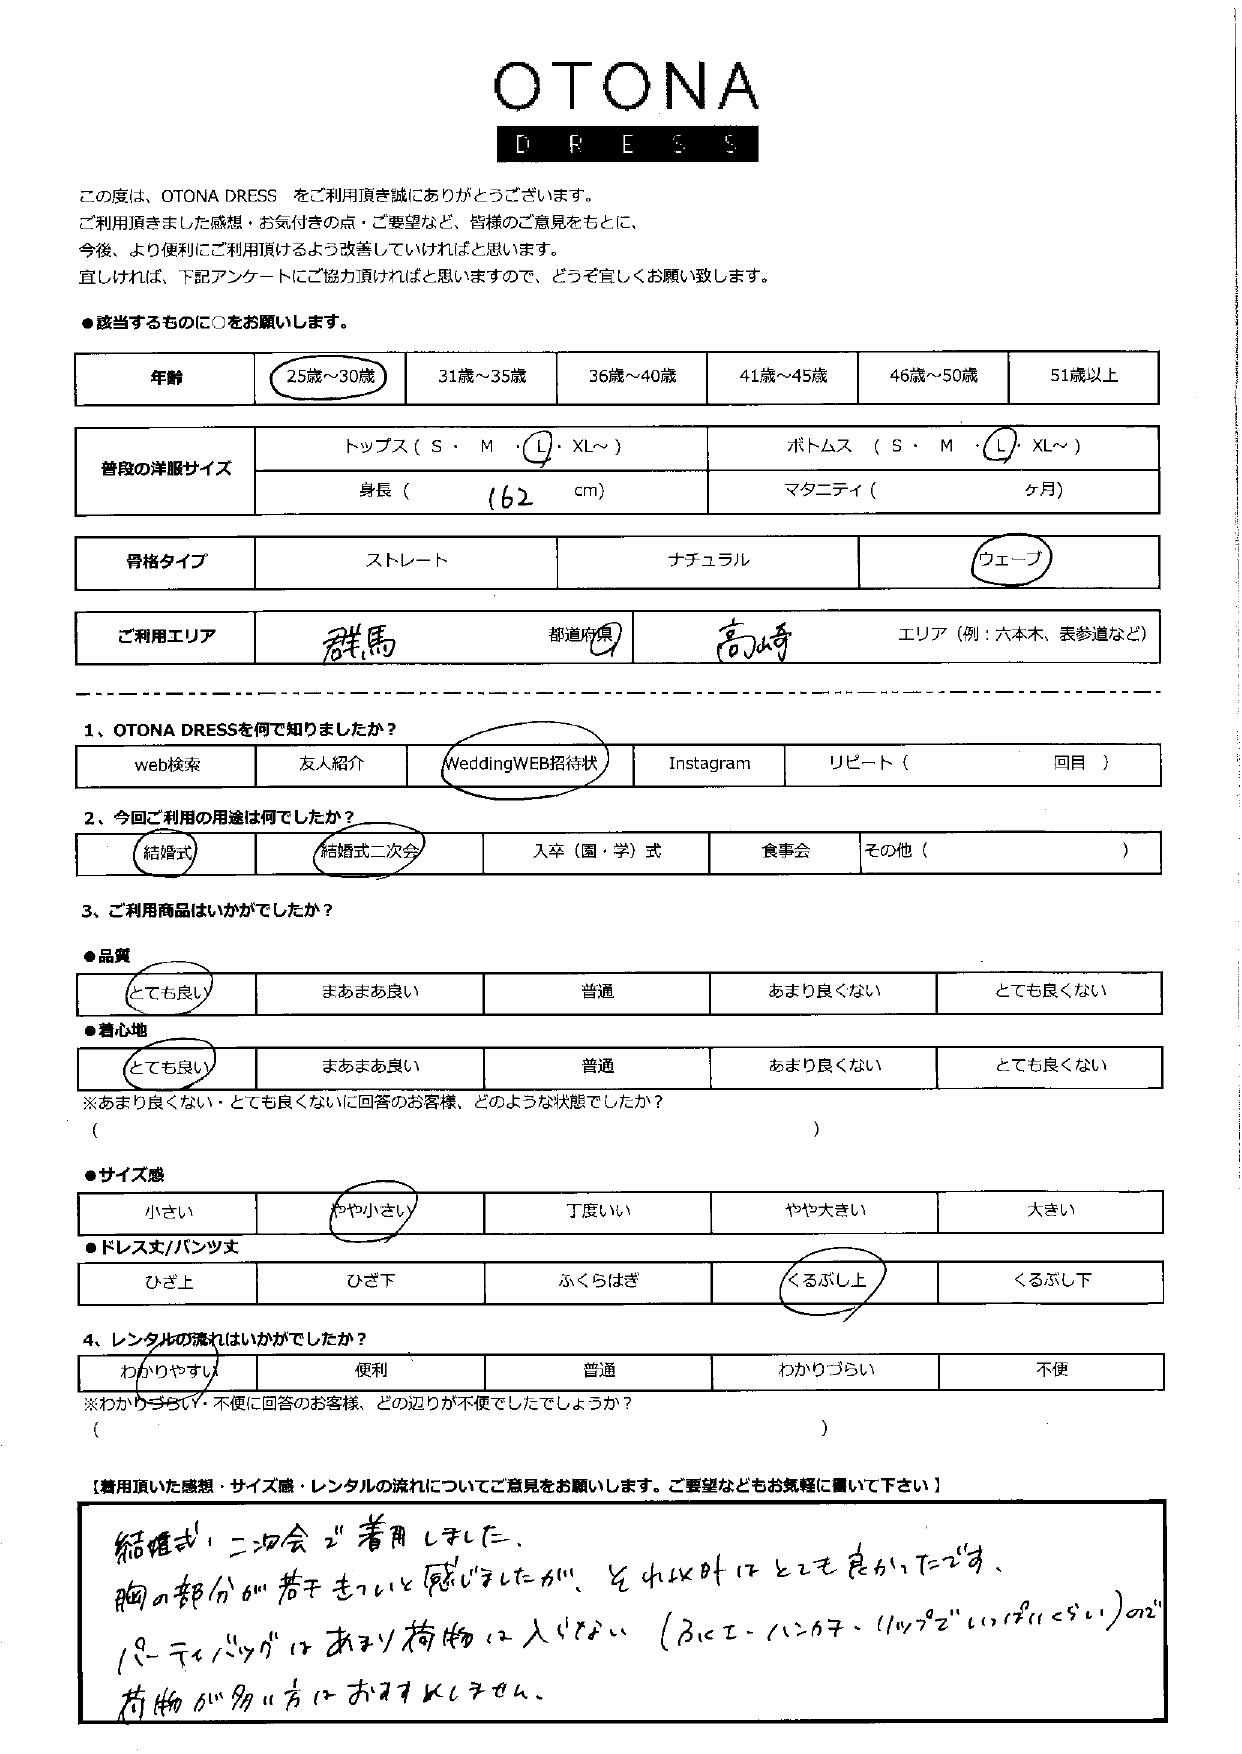 OTONA
DRESS
この度は、OTONA DRESS をご利用頂き誠にありがとうございます。
ご利用頂きました感想・お気付きの点・ご要望など、皆様のご意見をもとに、
今後、より便利にご利用頂けるよう改善していければと思います。
宜しければ、下記アンケートにご協力頂ければと思いますので、どうぞ宜しくお願い致します。
●該当するものに○をお願いします。
年齢 25歳～30歳 31歳～35歳 36歳～40歳 41歳～45歳 46歳～50歳 51歳以上
普段の洋服サイズ
トップス ( S ・ M ・ L ・ XL～ ) ボトムス ( S ・ M ・ L ・ XL～ )
身長 ( 162 cm) マタニティ ( ヶ月)
骨格タイプ ストレート ナチュラル ウェーブ
ご利用エリア 群馬 都道府県 高崎 エリア（例：六本木、表参道など）
1、OTONA DRESSを何で知りましたか？
web検索 友人紹介 WeddingWEB招待状 Instagram リピート ( 回目 )
2、今回ご利用の用途は何でしたか？
結婚式 結婚式二次会 入卒（園・学）式 食事会 その他 ( )
3、ご利用商品はいかがでしたか？
●品質
とても良い まあまあ良い 普通 あまり良くない とても良くない
●着心地
とても良い まあまあ良い 普通 あまり良くない とても良くない
※あまり良くない・とても良くないに回答のお客様、どのような状態でしたか？
( )
●サイズ感
小さい やや小さい 丁度いい やや大きい 大きい
●ドレス丈/パンツ丈
ひざ上 ひざ下 ふくらはぎ くるぶし上 くるぶし下
4、レンタルの流れはいかがでしたか？
わかりやすい 便利 普通 わかりづらい 不便
※わかりづらい・不便に回答のお客様、どの辺りが不便でしたでしょうか？
( )
【着用頂いた感想・サイズ感・レンタルの流れについてご意見をお願いします。ご要望などもお気軽に書いて下さい】
結婚式、二次会で着用しました。
胸の部分が若干きついと感じましたが、それ以外はとても良かったです。
パーティバッグはあまり荷物は入らない（ふくエ・ハンカチ・リップでいっぱいくらい）ので
荷物が多い方はおすすめしません。